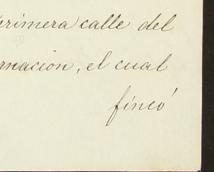 primera calle del
rnacion, el cual
fincó